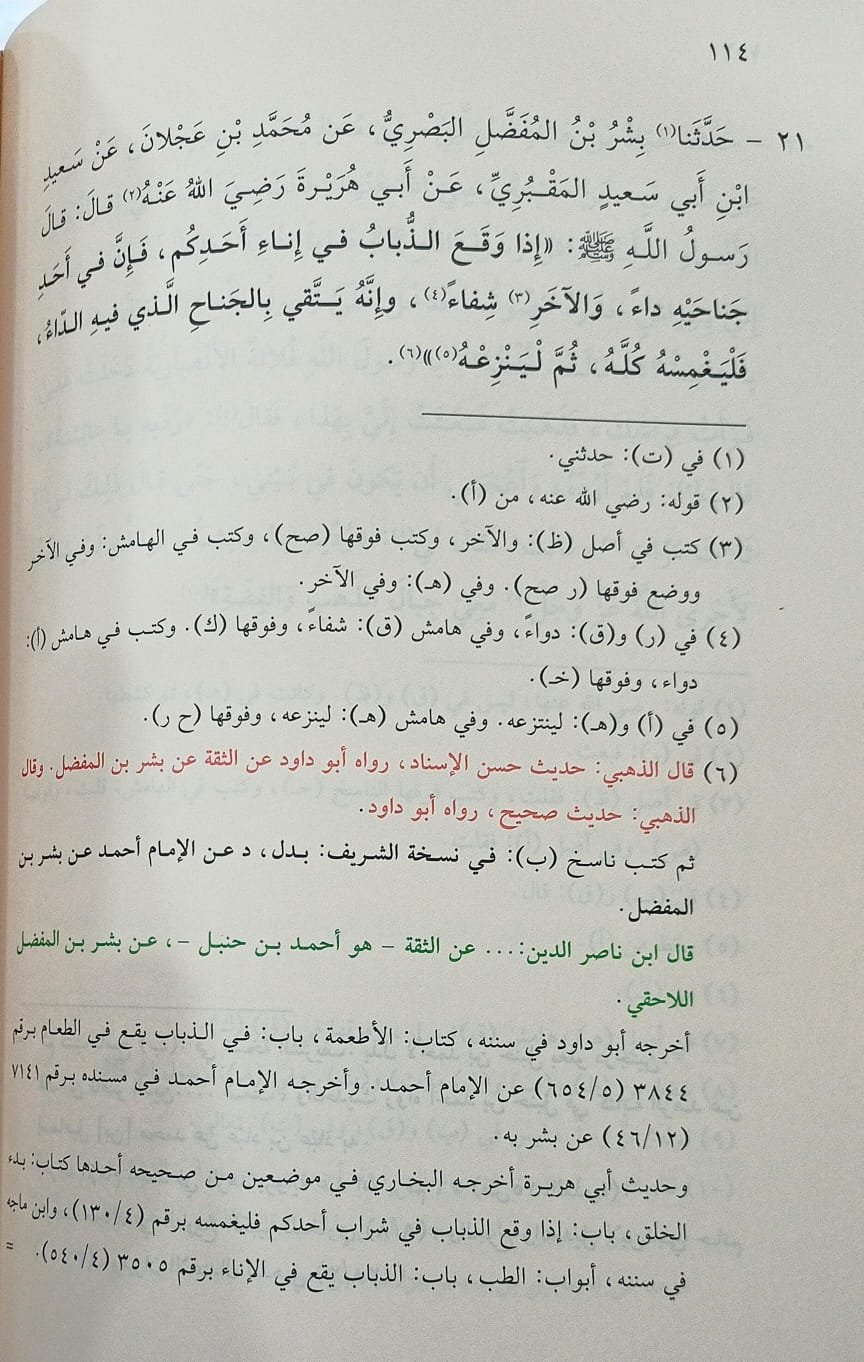 ١١٤
٢١ – حَدَّثَنا(١) بِشْرُ بْنُ المُفَضَّلِ البَصْرِيُّ، عَن مُحَمَّدِ بْنِ عَجْلانَ، عَنْ سَعيدِ
ابْنِ أَبي سَعيدٍ المَقْبُرِيِّ، عَنْ أَبي هُرَيْرةَ رَضِيَ اللهُ عَنْهُ(٢) قالَ: قالَ
رَسولُ اللَّهِ ﷺ: «إِذا وَقَعَ الذُّبابُ في إِناءِ أَحَدِكُم، فَإِنَّ في أَحَدِ
جَناحَيْهِ داءً، وَالآخَرِ(٣) شِفاءً(٤)، وإِنَّهُ يَتَّقي بِالجَناحِ الَّذي فيهِ الدّاءُ،
فَلْيَغْمِسْهُ كُلَّهُ، ثُمَّ لْيَنْزِعْهُ(٥)»(٦).
(١) في (ت): حدثني.
(٢) قوله: رضي الله عنه، من (أ).
(٣) كتب في أصل (ظ): والآخر، وكتب فوقها (صح)، وكتب في الهامش: وفي الآخر
ووضع فوقها (ر صح). وفي (هـ): وفي الآخر.
(٤) في (ر) و(ق): دواءً، وفي هامش (ق): شفاءً، وفوقها (ك). وكتب في هامش (أ):
دواء، وفوقها (خـ).
(٥) في (أ) و(هـ): لينتزعه. وفي هامش (هـ): لينزعه، وفوقها (ح ر).
(٦) قال الذهبي: حديث حسن الإسناد، رواه أبو داود عن الثقة عن بشر بن المفضل. وقال
الذهبي: حديث صحيح، رواه أبو داود.
ثم كتب ناسخ (ب): في نسخة الشريف: بدل، د عن الإمام أحمد عن بشر بن
المفضل.
قال ابن ناصر الدين:... عن الثقة – هو أحمد بن حنبل –، عن بشر بن المفضل
اللاحقي.
أخرجه أبو داود في سننه، كتاب: الأطعمة، باب: في الذباب يقع في الطعام برقم
٣٨٤٤ (٦٥٤/٥) عن الإمام أحمد. وأخرجه الإمام أحمد في مسنده برقم ٧١٤١
(٤٦/١٢) عن بشر به.
وحديث أبي هريرة أخرجه البخاري في موضعين من صحيحه أحدها كتاب: بدء
الخلق، باب: إذا وقع الذباب في شراب أحدكم فليغمسه برقم (١٣٠/٤)، وابن ماجه
في سننه، أبواب: الطب، باب: الذباب يقع في الإناء برقم ٣٥٠٥ (٥٤٠/٤). =